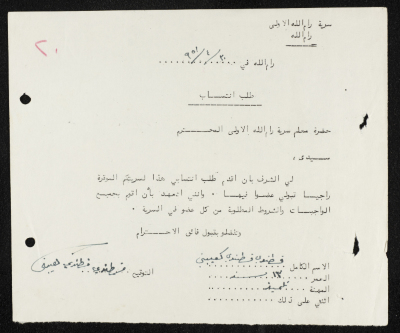 سرية رام الله الاولى
رام الله
٢٠
رام الله في
طلب انتساب
حضرة معلم سرية رام الله الاولى المحترم
سيدي ،
لي الشرف بان اقدم طلب انتسابي هذا لسريتكم الموقرة
راجيا قبولي عضوا فيها . وانني اتعهد بأن اقوم بجميع
الواجبات والشروط المطلوبة من كل عضو في السرية .
وتفضلو بقبول فائق الاحترام
الاسم الكامل
العمر ١٣
المهنة تلميذ
اثني على ذلك
التوقيع